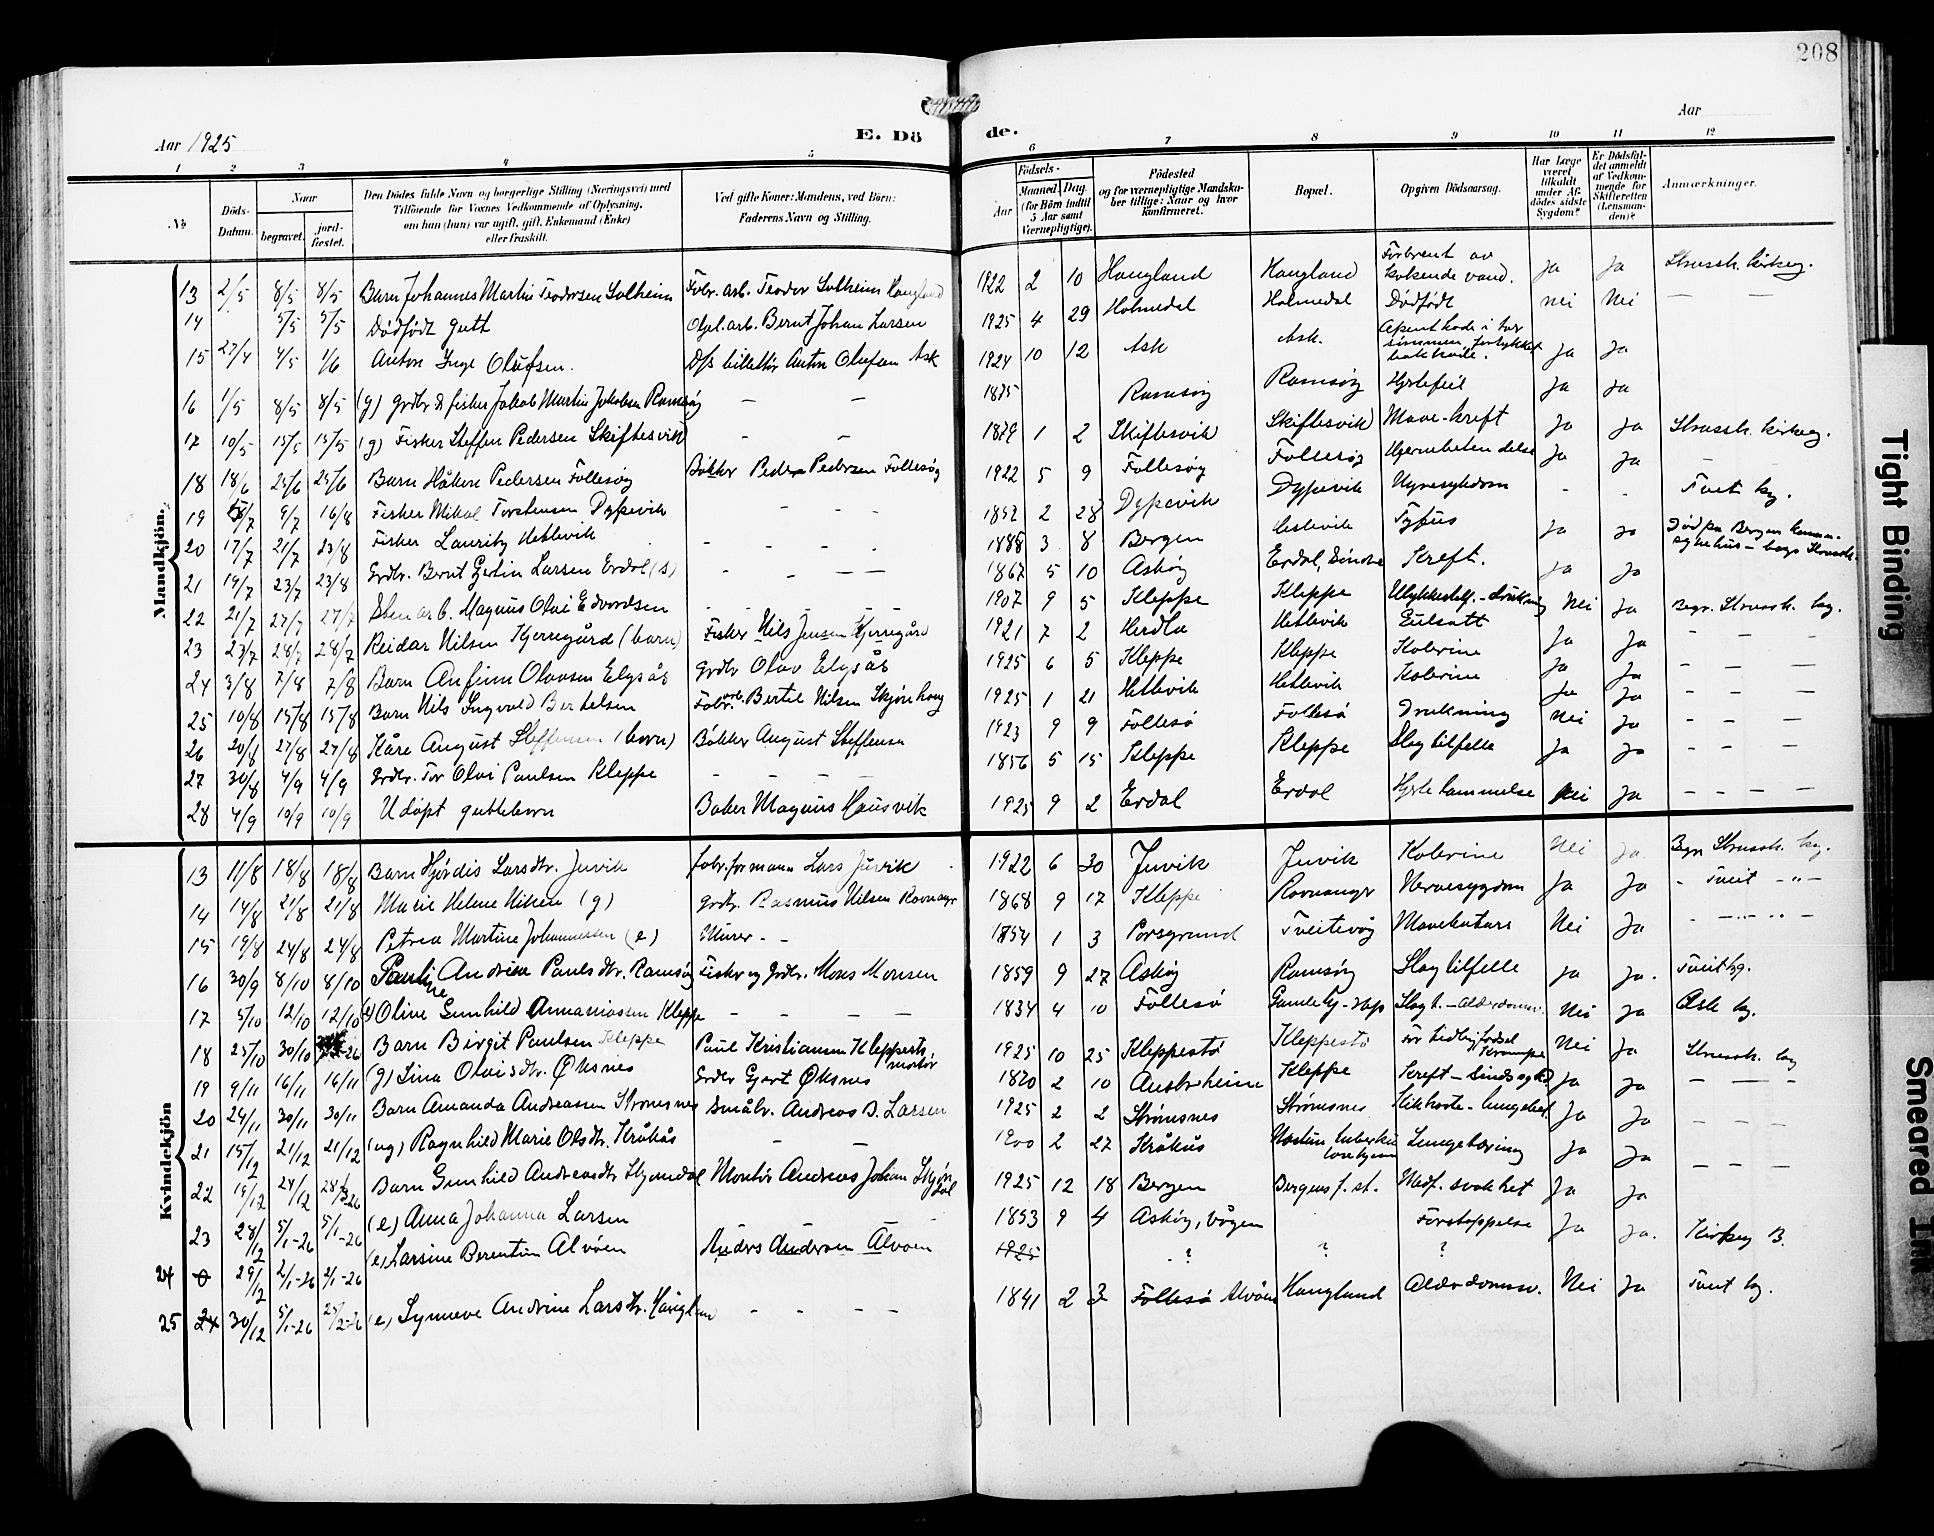 208
Aar 1925
E. Dö de.
Aar
1 2 3 4 5 6 7 8 9 10 11 12
No
Döds-Datum.
Naar begravet. jord-fæstet.
Den Dödes fulde Navn og borgerlige Stilling (Næringsvei) med
Tilföiende for Voxnes Vedkommende af Oplysning,
om han (hun) var ugift, gift, Enkemand (Enke)
eller fraskilt.
Ved gifte Koner: Mandens, ved Börn:
Faderens Navn og Stilling.
Födsels-
Aar
Maaned. Dag.
(for Börn indtil
5 Aar samt
Værnepligtige).
Födested
og for værnepligtige Mandska-
ber tillige: Naar og hvor
konfirmeret.
Bopæl.
Opgiven Dödsaarsag.
Har Læge
været
tilkaldt
under Af-
dödes sidste
Sygdom?
Er Dödsfal-
det anmeldt
af Vedkom-
mende for
Skifteretten
(Lensman-
den)?
Anmærkninger.
Mandkjön.
13 2/5 8/5 8/5 Barn Johannes Martin Teodorsen Solheim Fabr. arb. Teodor Solheim Haugland 1922 2 10 Haugland Haugland Forbrent av kokende vand. Ja Ja Strussh. kirkeg.
14 5/5 5/5 Dødfødt gutt Opl. arb. Bernt Johan Larsen 1925 4 29 Holmedal Holmedal Dødfødt Nei Nei — —
15 27/4 4/5 1/6 Anton Inge Olufsen. D/s billettør Anton Olufsen Ask 1924 10 12 Ask Ask. Ja Ja
16 1/5 8/5 8/5 (g) Grdbr. & fisker Jakob Martin Jakobsen Ramsøy — — 1875 Ramsøy Ramsøy Hjertefeil Ja Ja
17 10/5 15/5 15/5 (g) Fisker Steffen Pedersen Skiftesvik — — 1879 1 2 Skiftesvik Skiftesvik Mave-kreft Ja Ja Strussh. kirkeg.
18 18/6 25/6 25/6 Barn Håkon Pedersen Follesøy Bøkker Peder Pedersen Follesøy 1922 5 9 Follesøy Follesøy Ja Ja — —
19 5/7 9/7 16/8 Fisker Mikal Torstensen Dypevik - - - 1852 2 28 Dypevik Dypevik Nyresykdom - - Tveit kg.
20 17/7 21/7 23/8 Fisker Lauritz Hetlevik - - - - 1888 3 8 Bergen Hetlevik Tyfus Ja Ja Død paa Bergen komm. sykehus - begr. Strussh.
21 19/7 23/7 23/8 Grdbr. Bernt Gjertin Larsen Erdal (s) - - — — 1867 5 10 Askøy Erdal, Kreft. Ja Ja
22 21/7 27/7 27/7 Sten arb. Magnus Olai Edvardsen - - - - 1907 9 5 Kleppe Kleppe Ulykkestilf. - drukning Nei Ja Begr. Strussh. kg.
23 23/7 28/7 28/7 Reidar Nilsen Kjerregård (barn) Fisker Nils Jensen Kjerregård 1921 7 2 Herdla Hetlevik Gulsott Ja Ja — — —
24 3/8 7/8 7/8 Barn Anfinn Olavsen Elgsås Grdbr Olav Elgsås 1925 6 5 Kleppe Kleppe Kolerine Ja Ja — — —
25 10/8 15/8 15/8 Barn Nils Ingvald Bertelsen Fabr. arb. Bertel Nilsen Skjønhaug 1925 1 21 Hetlevik Hetlevik Kolerine Ja Ja — — —
26 20/8 27/8 27/8 Kåre August Steffensen (barn) Bøkker August Steffensen 1923 9 9 Follesø Follesø Drukning Nei Ja — — —
27 30/8 4/9 4/9 Grdbr. Tor Olai Paulsen Kleppe — — — — 1856 5 15 Kleppe Kleppe Slagtilfelle Ja Ja — — —
28 4/9 10/9 10/9 Udøpt guttebarn Baker Magnus Hausvik 1925 9 2 Erdal Erdal Hjertelammelse Nei Ja — — — —
Kvindekjön
13 11/8 18/8 18/8 Barn Hjørdis Larsdtr. Juvik fabr. formann Lars Juvik 1922 6 30 Juvik Juvik Kolerine Nei Ja Begr Strussh. kg.
14 14/8 21/8 21/8 Marie Helene Nilsen (g) Grdbr. Rasmus Nilsen Ravnanger 1868 9 17 Kleppe Ravnangr Nervesygdom Ja Ja - Tveit -"-
15 19/8 24/8 24/8 Petrea Martine Johannessen (e) Murer - - 1854 1 3 Porsgrund Tveitevåg Mavekatarr Nei Ja
16 30/9 8/10 8/10 Pauline Andrine Paulsdtr. Ramsøy Fisker og Grdbr. Mons Monsen 1859 9 27 Askøy Ramsøy Slagtilfelle Ja Ja. Tveit kg.
17 5/10 12/10 12/10 (e) Oline Gunhild Annaniassen Kleppe — — — — 1834 4 10 Follesø Slagt. - Alderdomsv. Nei Ja Ask kg.
18 25/10 30/10 Barn Birgit Paulsen Kleppe Paul Kristiansen Kleppestø montør 1925 10 25 Kleppestø Kleppestø For tidlig fødsel Krampe Nei Ja Strussh. kg
19 9/11 16/11 16/11 (g) Lina Olaisdtr. Øksnes Grdbr Gjert Øksnes 1870 2 10 Austrheim Kleppe Kreft - Ja Ja — — —
20 24/11 30/11 30/11 Barn Amanda Andreassen Strømsnes Småbr. Andreas B. Larsen 1925 2 2 Strømsnes Strømsnes Kikhoste - lungebet. Ja Ja — — —
21 15/12 21/12 21/12 (ug) Ragnhild Marie Olsdtr. Kråkås — — 1900 2 27 Kråkås Lungetæring Ja Ja — — —
22 19/12 24/12 Barn Gunhild Andreasdtr Skjondal Montør Andreas Johan 1925 12 18 Bergen Bergens f. st. Medf. svakhet Ja Ja
23 28/12 5/1-26 5/1-26 (e) Anna Johanna Larsen 1853 9 4 Askøy, Vågen Forstoppelse Ja Ja. Kirkeg B.
24 0 29/12 2/1-26 2/1-26 (e) Larsine Berentine Alvøen Anders Andersen Alvøen 1925 ? ? ?
25 24 30/12 5/1-26 25/2-26 (e) Synneve Andrine Larsdtr. Haugland — — — — 1841 2 3 Follesø Alvøen Haugland Alderdomsv. Nei Ja Tveit kg.
Tight Binding
Smeared Ink